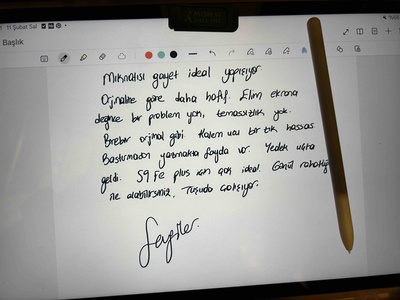 11 Şubat Sal
Başlık
Mıknatısı gayet ideal yapışıyor
Orjinaline göre daha hafif. Elim ekrana
değince bir problem yok, temassızlık yok.
Birebir orjinal gibi Kalem ucu bir tık hassas
Bastırmadan yazmakta fayda var. Yedek uçta
geldi. S9 Fe plus için çok ideal. Gönül rahatlığı
ile alabilirsiniz. Tuşuda çalışıyor.